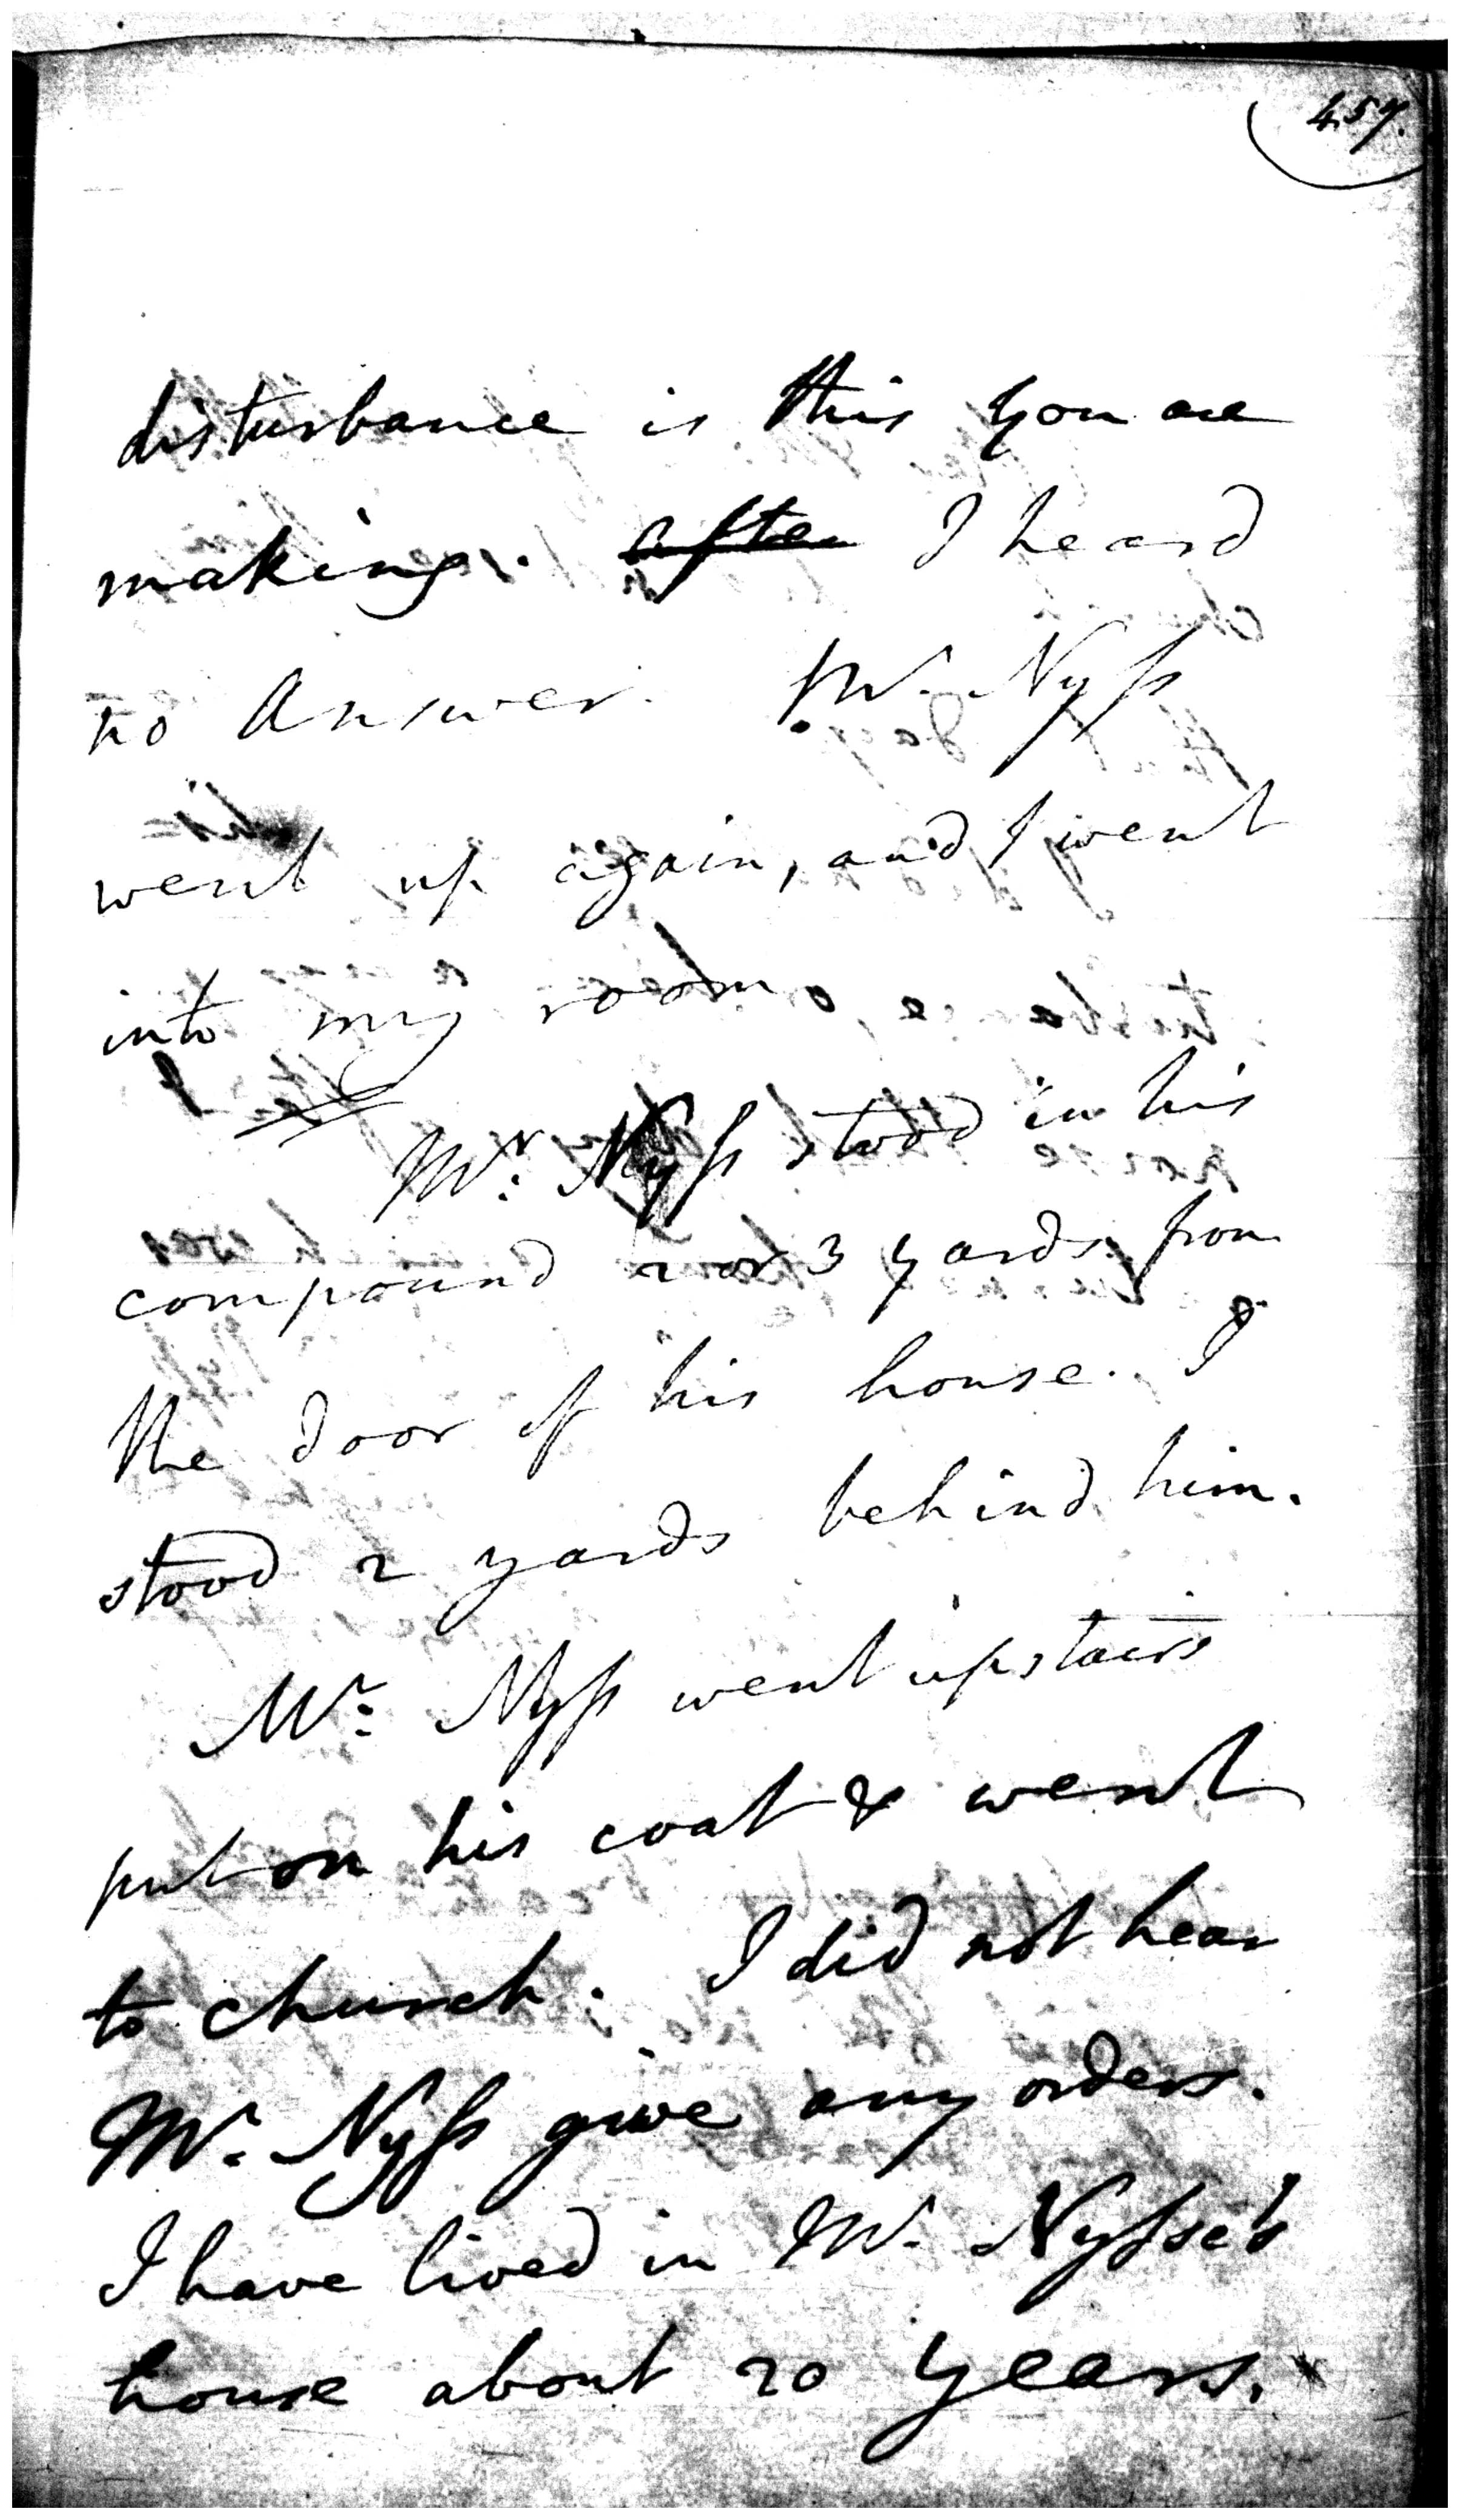 457.
disturbance is this you are
making. after I heard
no Answer. Mr. Nyss
went up again, and I went
into my room.
Mr. Nyss stood in his
compound 2 or 3 yards from
the door of his house. I
stood 2 yards behind him.
Mr. Nyss went upstairs
put on his coat & went
to church. I did not hear
Mr. Nyss give any orders.
I have lived in Mr. Nysse's
house about 20 years.